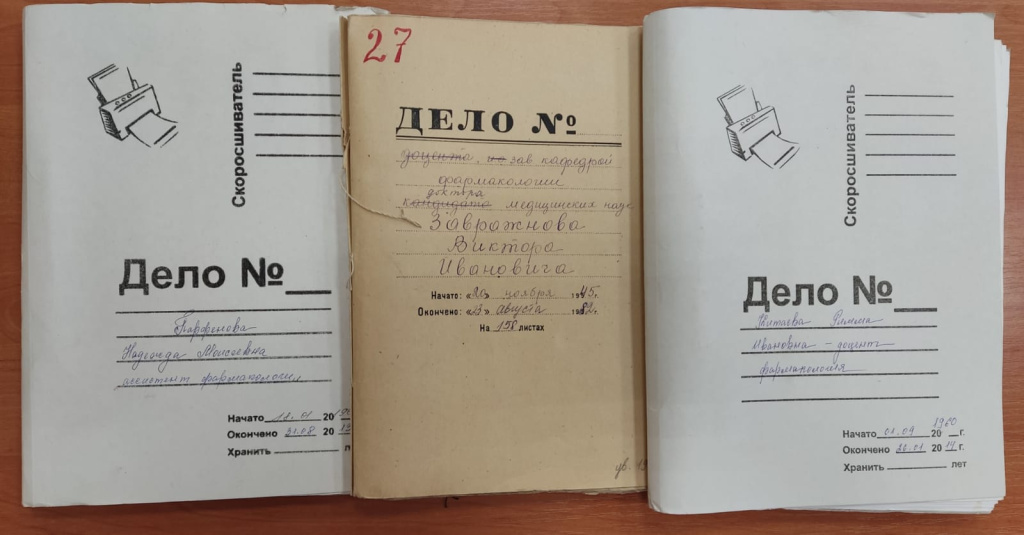 Скоросшиватель
Дело №
Парфенова
Надежда Моисеевна
ассистент фармакологии
Начато 12.01 20
Окончено 31.08 20 13
Хранить
27
ДЕЛО №
доцента, ио зав кафедрой
фармакологии
доктора
кандидата медицинских наук
Завражнова
Виктора
Ивановича
Начато: «20» ноября 1945г.
Окончено: августа 1982г.
На 158 листах
ув.
Скоросшиватель
Дело №
Китаева Римма
Ивановна - доцент
фармакология
1960
Начато 01.09 20 г.
Окончено 20 14 г.
Хранить лет